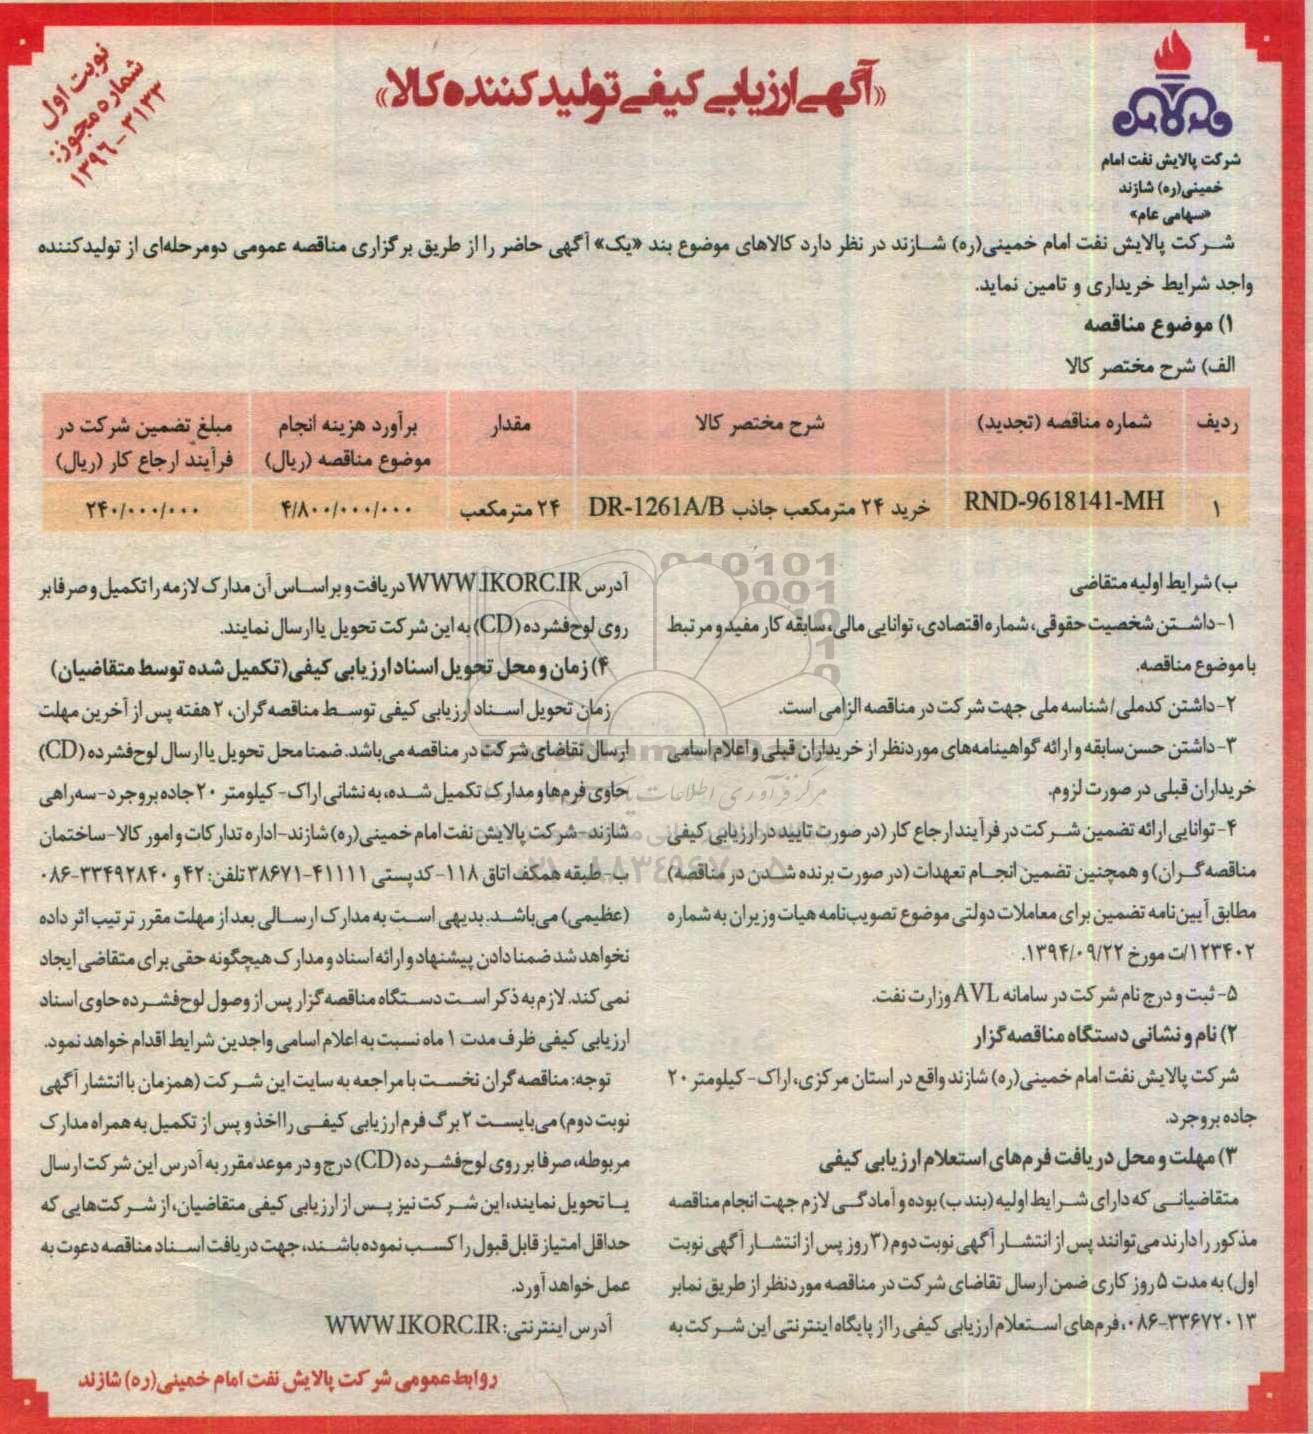 نوبت اول
شماره مجوز:
۱۳۹۶-۳۱۳۳
«آگهی ارزیابی کیفی تولید کننده کالا»
شرکت پالایش نفت امام
خمینی(ره) شازند
«سهامی عام»
شرکت پالایش نفت امام خمینی(ره) شازند در نظر دارد کالاهای موضوع بند «یک» آگهی حاضر را از طریق برگزاری مناقصه عمومی دومرحله‌ای از تولیدکننده
واجد شرایط خریداری و تامین نماید.
۱) موضوع مناقصه
الف) شرح مختصر کالا
ردیف | شماره مناقصه (تجدید) | شرح مختصر کالا | مقدار | برآورد هزینه انجام موضوع مناقصه (ریال) | مبلغ تضمین شرکت در فرآیند ارجاع کار (ریال)
۱ | RND-9618141-MH | خرید ۲۴ مترمکعب جاذب DR-1261A/B | ۲۴ مترمکعب | ۴/۸۰۰/۰۰۰/۰۰۰ | ۲۴۰/۰۰۰/۰۰۰
ب) شرایط اولیه متقاضی
۱-داشتن شخصیت حقوقی، شماره اقتصادی، توانایی مالی، سابقه کار مفید و مرتبط
با موضوع مناقصه.
۲-داشتن کدملی/شناسه ملی جهت شرکت در مناقصه الزامی است.
۳-داشتن حسن‌سابقه و ارائه گواهینامه‌های موردنظر از خریداران قبلی و اعلام اسامی
خریداران قبلی در صورت لزوم.
۴-توانایی ارائه تضمین شرکت در فرآیند ارجاع کار (در صورت تایید در ارزیابی کیفی
مناقصه‌گران) و همچنین تضمین انجام تعهدات (در صورت برنده شدن در مناقصه)
مطابق آیین‌نامه تضمین برای معاملات دولتی موضوع تصویب‌نامه هیات وزیران به شماره
۱۲۳۴۰۲/ت مورخ ۱۳۹۴/۰۹/۲۲.
۵-ثبت و درج نام شرکت در سامانه AVL وزارت نفت.
۲) نام و نشانی دستگاه مناقصه‌گزار
شرکت پالایش نفت امام خمینی(ره) شازند واقع در استان مرکزی، اراک- کیلومتر ۲۰
جاده بروجرد.
۳) مهلت و محل دریافت فرم‌های استعلام ارزیابی کیفی
متقاضیانی که دارای شرایط اولیه (بند ب) بوده و آمادگی لازم جهت انجام مناقصه
مذکور را دارند می‌توانند پس از انتشار آگهی نوبت دوم (۳ روز پس از انتشار آگهی نوبت
اول) به مدت ۵ روز کاری ضمن ارسال تقاضای شرکت در مناقصه موردنظر از طریق نمابر
۰۸۶-۳۳۶۷۲۰۱۳، فرم‌های استعلام ارزیابی کیفی را از پایگاه اینترنتی این شرکت به
آدرس WWW.IKORC.IR دریافت و براساس آن مدارک لازمه را تکمیل و صرفا بر
روی لوح‌فشرده (CD) به این شرکت تحویل یا ارسال نمایند.
۴) زمان و محل تحویل اسناد ارزیابی کیفی (تکمیل شده توسط متقاضیان)
زمان تحویل اسناد ارزیابی کیفی توسط مناقصه‌گران، ۲ هفته پس از آخرین مهلت
ارسال تقاضای شرکت در مناقصه می‌باشد. ضمنا محل تحویل یا ارسال لوح‌فشرده (CD)
حاوی فرم‌ها و مدارک تکمیل شده، به نشانی اراک- کیلومتر ۲۰ جاده بروجرد-سه‌راهی
شازند-شرکت پالایش نفت امام خمینی(ره) شازند-اداره تدارکات و امور کالا-ساختمان
ب-طبقه همکف اتاق ۱۱۸-کدپستی ۴۱۱۱۱-۳۸۶۷۱ تلفن: ۴۲ و ۳۳۴۹۲۸۴۰-۰۸۶
(عظیمی) می‌باشد. بدیهی است به مدارک ارسالی بعد از مهلت مقرر ترتیب اثر داده
نخواهد شد ضمنا دادن پیشنهاد و ارائه اسناد و مدارک هیچگونه حقی برای متقاضی ایجاد
نمی‌کند. لازم به ذکر است دستگاه مناقصه‌گزار پس از وصول لوح‌فشرده حاوی اسناد
ارزیابی کیفی ظرف مدت ۱ ماه نسبت به اعلام اسامی واجدین شرایط اقدام خواهد نمود.
توجه: مناقصه‌گران نخست با مراجعه به سایت این شرکت (همزمان با انتشار آگهی
نوبت دوم) می‌بایست ۲ برگ فرم ارزیابی کیفی را اخذ و پس از تکمیل به همراه مدارک
مربوطه، صرفا بر روی لوح‌فشرده (CD) درج و در موعد مقرر به آدرس این شرکت ارسال
یا تحویل نمایند، این شرکت نیز پس از ارزیابی کیفی متقاضیان، از شرکت‌هایی که
حداقل امتیاز قابل قبول را کسب نموده باشند، جهت دریافت اسناد مناقصه دعوت به
عمل خواهد آورد.
آدرس اینترنتی: WWW.IKORC.IR
روابط عمومی شرکت پالایش نفت امام خمینی(ره) شازند